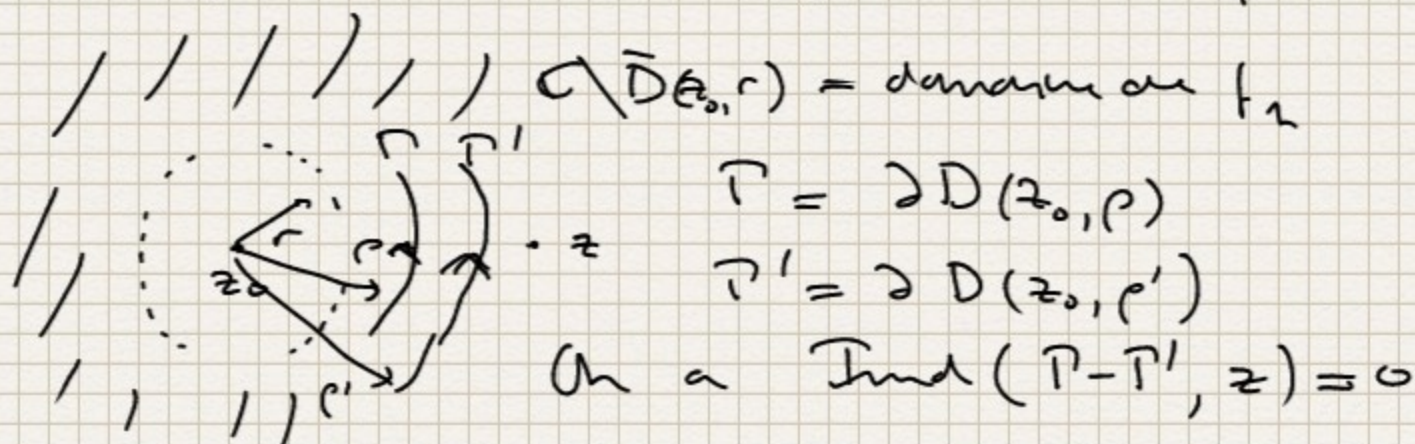 ℂ\D̄(z₀,r) = domaine de f₂
Γ Γ'
Γ = ∂D(z₀,ρ)
r ρ · z
z₀
Γ' = ∂D(z₀,ρ')
ρ' On a Ind(Γ-Γ', z) = 0